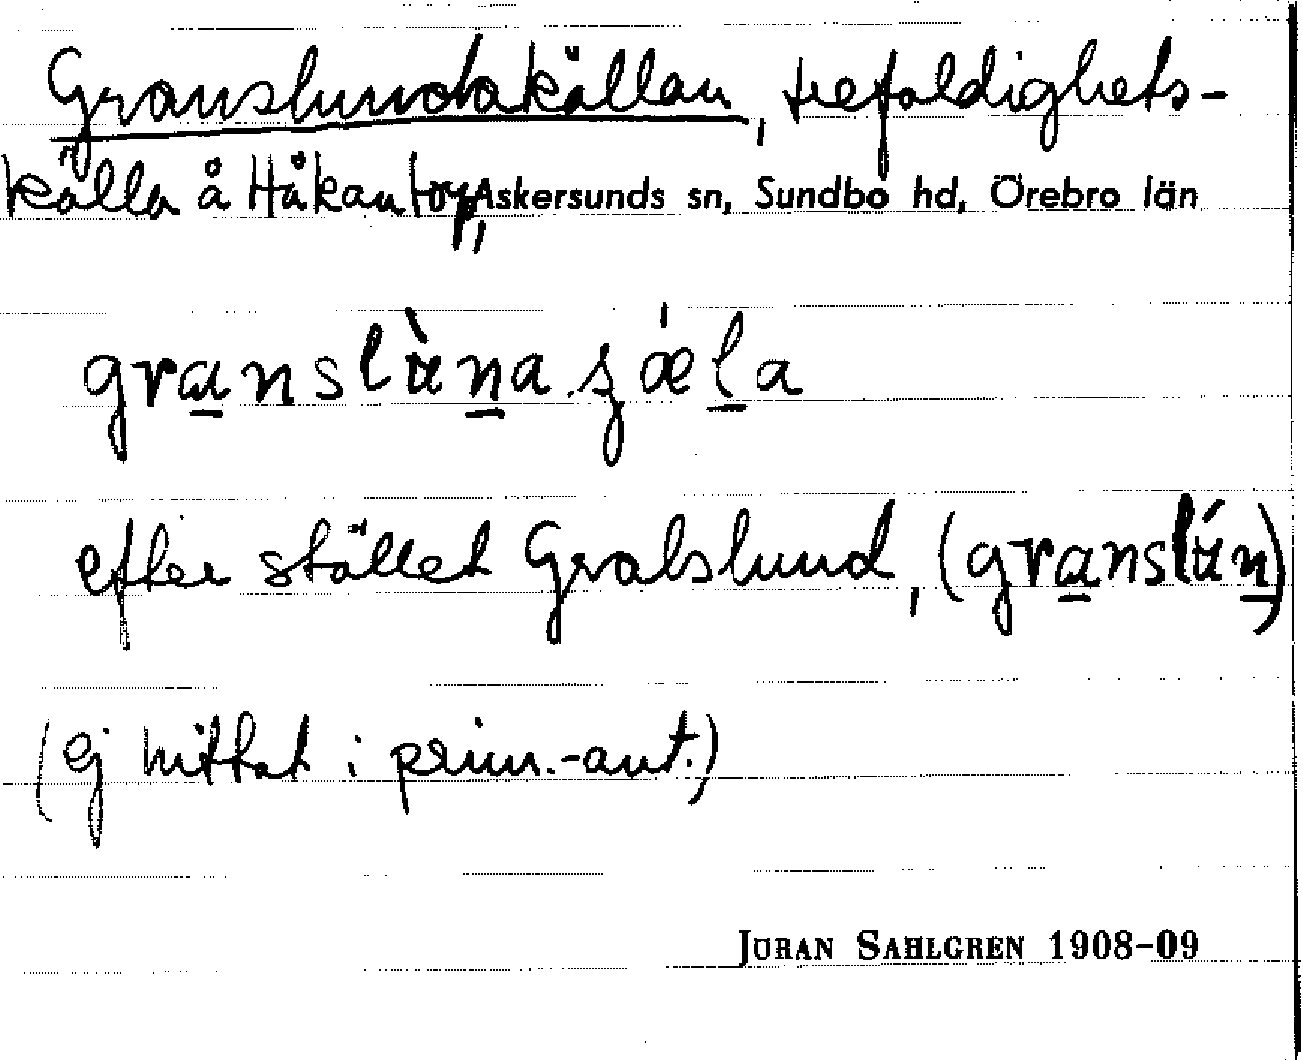 Granslundakällan, trefaldighets-
källa å Håkantorp, Askersunds sn, Sundbo hd, Örebro län
gra̲nslὰn̲a ʂǽl̲a
efter stället Gralslund, (gra̲nslάn̲)
(ej hittat i prim.-ant.)
JÖRAN SAHLGREN 1908-09